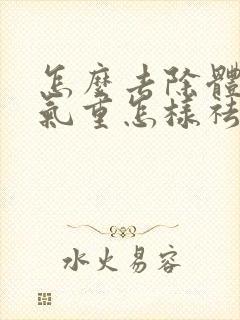 怎麼去除體
氣重怎樣祛
水火易容